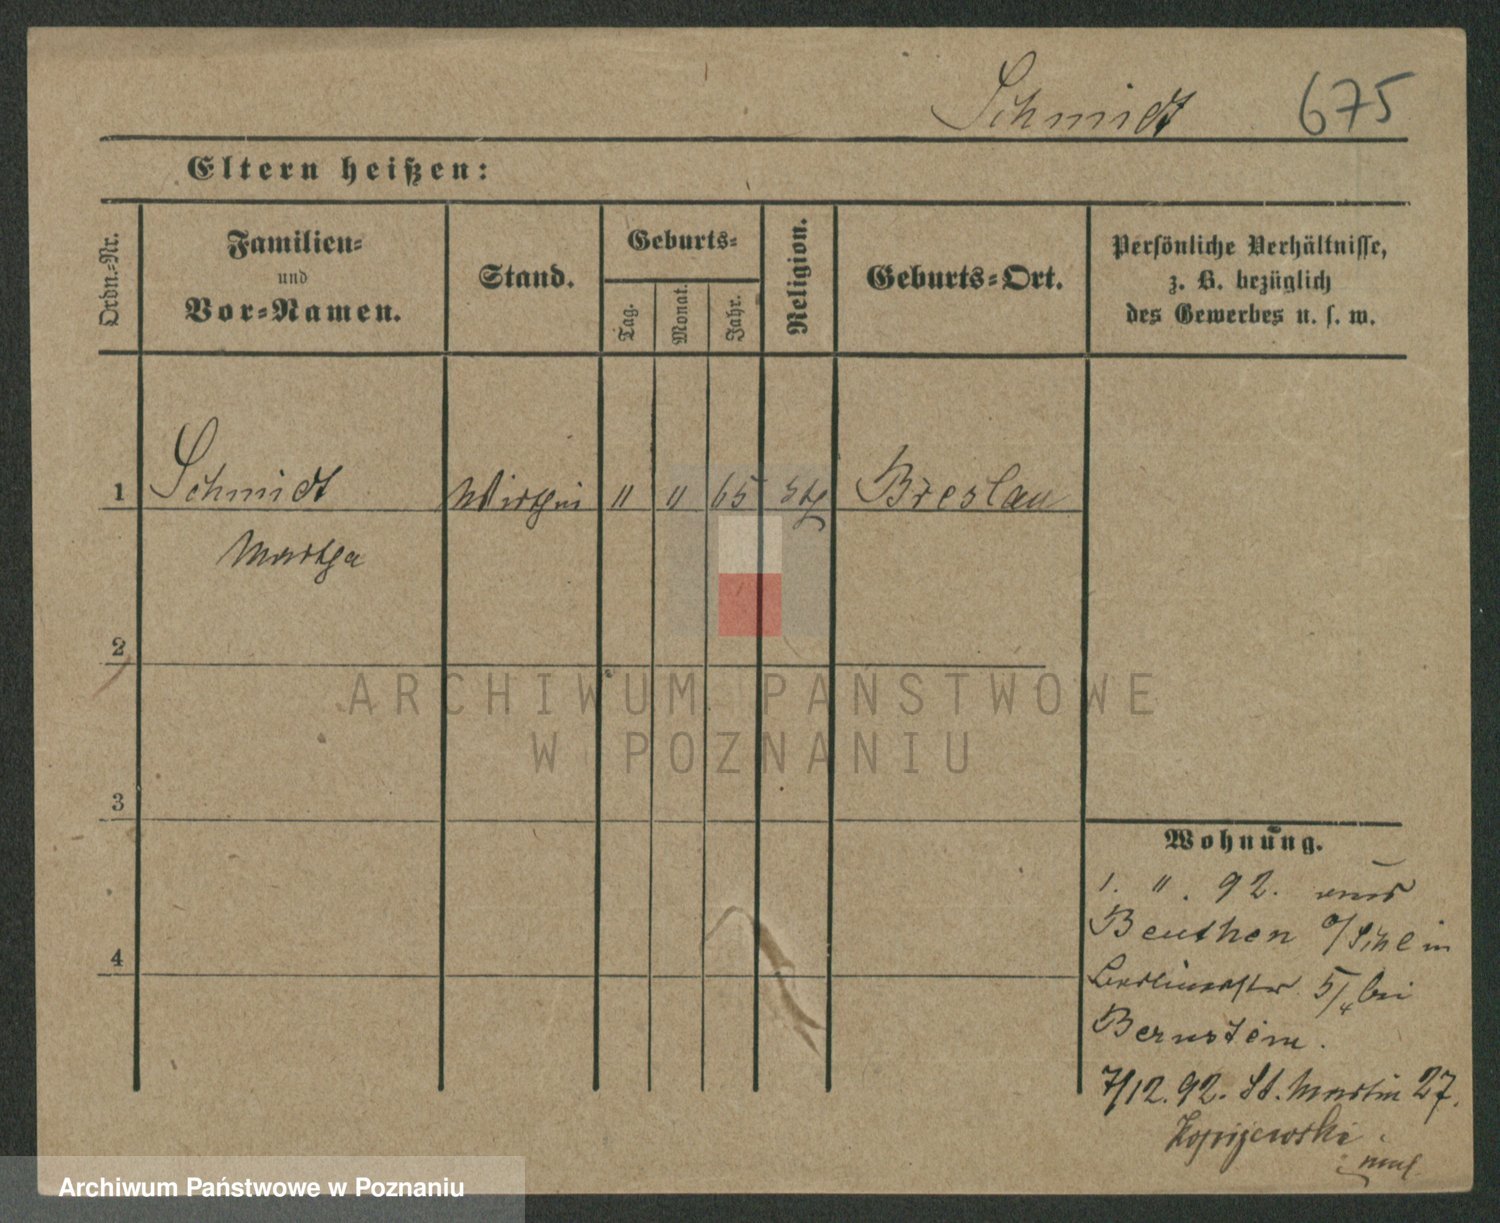 Schmidt 675
Eltern heißen:
Ordn.-Nr.
Familien-
und
Vor-Namen.
Stand.
Geburts-
Tag.
Monat.
Jahr.
Religion.
Geburts-Ort.
Persönliche Verhältnisse,
z. B. bezüglich
des Gewerbes u. s. w.
1 Schmidt Wirthin " " 65 kth Breslau
Martha
2
3
4
ARCHIWUM PAŃSTWOWE
W POZNANIU
Wohnung.
1. ". 92. aus
Beuthen o/Schl in
Berlinerstr 5/4 bei
Bernstein.
7/12. 92. St. Martin 27.
Archiwum Państwowe w Poznaniu